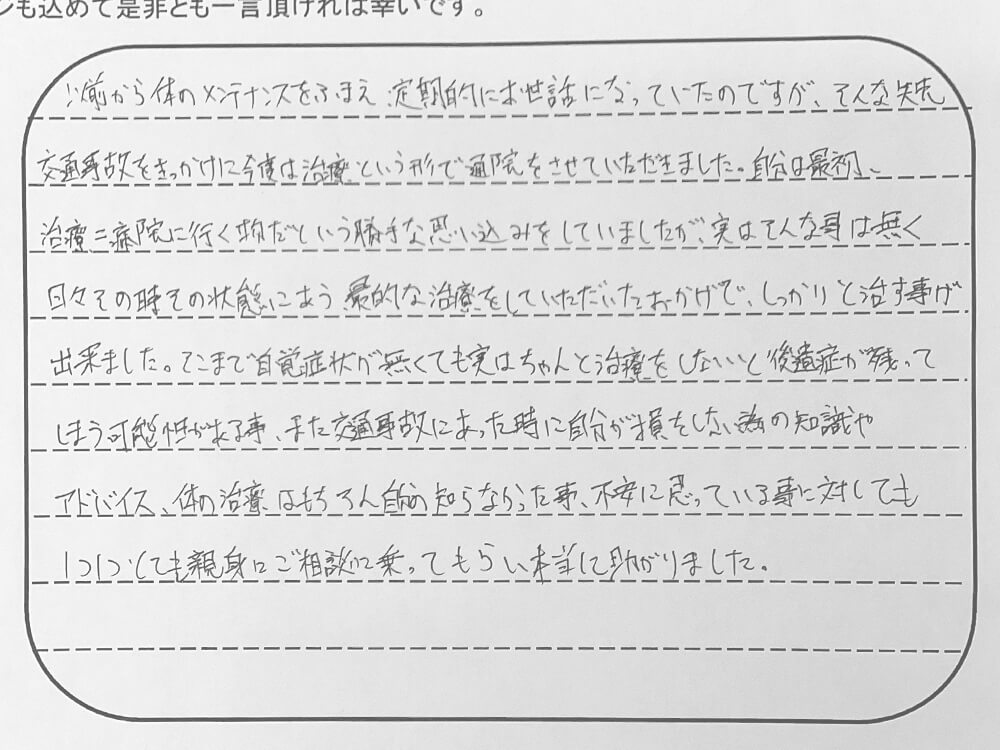 ジも込めて是非とも一言頂ければ幸いです。
以前から体のメンテナンスをふまえ定期的にお世話になっていたのですが、そんな矢先
交通事故をきっかけに今度は治療という形で通院をさせていただきました。自分は最初、
治療=病院に行く物だという勝手な思い込みをしていましたが、実はそんな事は無く
日々その時その状態にあう最的な治療をしていただいたおかげで、しっかりと治す事が
出来ました。そこまで自覚症状が無くても実はちゃんと治療をしないと後遺症が残って
しまう可能性がある事、また交通事故にあった時に自分が損をしない為の知識や
アドバイス、体の治療はもちろん自分の知らなかった事、不安に思っている事に対しても
1つ1つとても親身にご相談に乗ってもらい本当に助かりました。